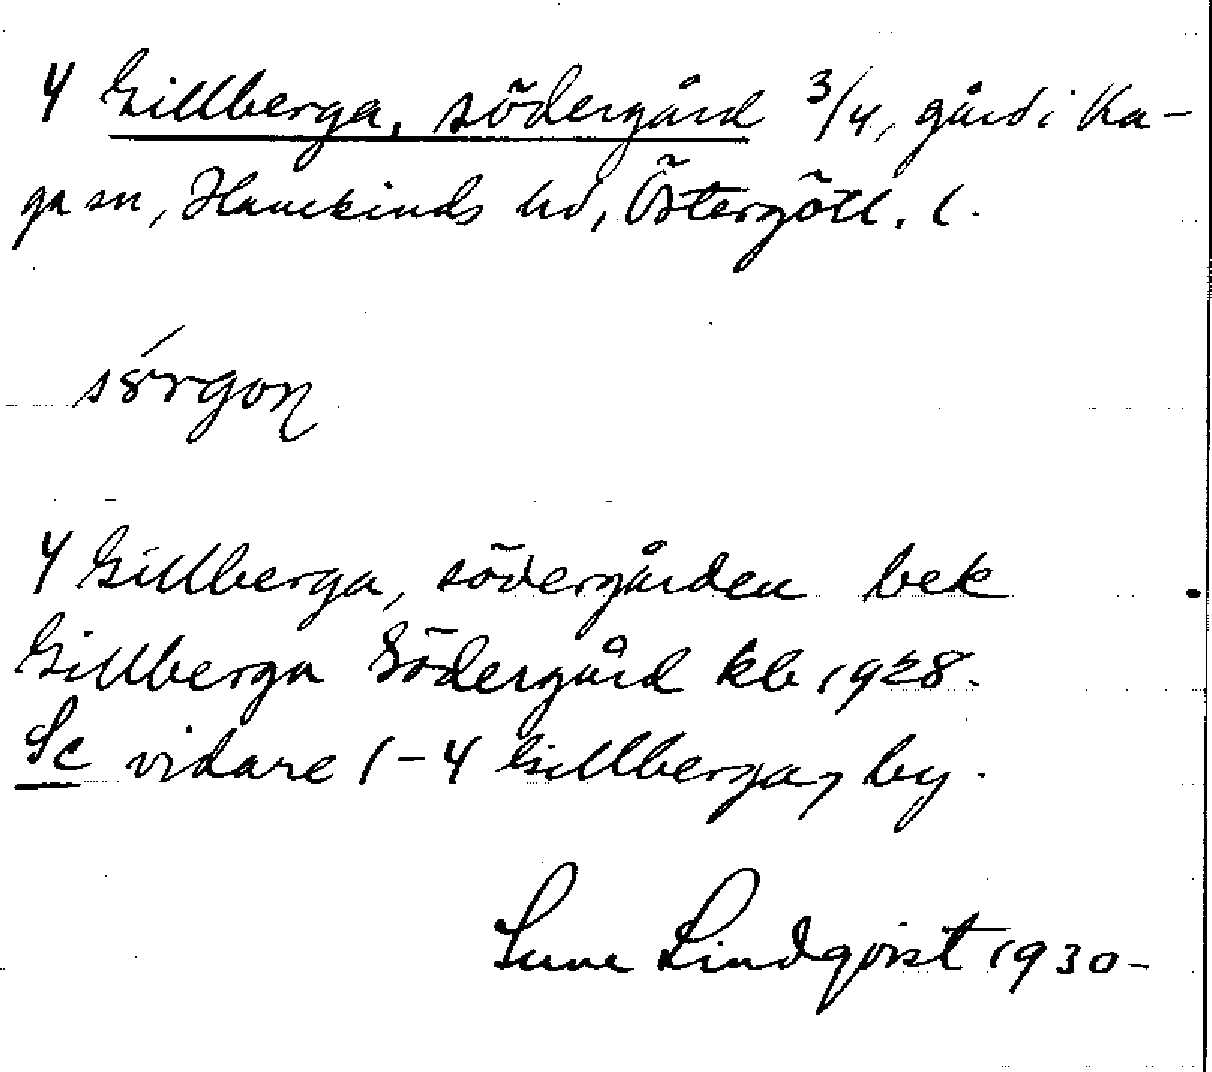 4 Gillberga, södergård 3/4, gård i Ka-
ga sn, Hanekinds hd, Östergötl. l.
sörgon
4 Gillberga, södergården bek
Gillberga Södergård kb 1928.
Se vidare 1-4 Gillberga, by.
Sune Lindqvist 1930-